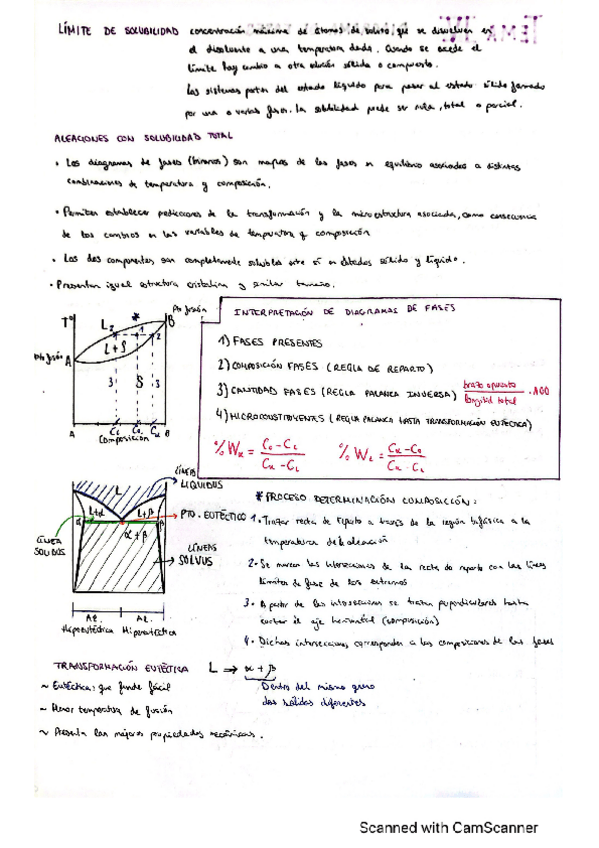 LÍMITE DE SOLUBILIDAD concentración máxima de átomos de soluto que se disuelven en
el disolvente a una temperatura dada. Cuando se excede el
límite hay cambio a otra solución sólida o compuesto.
Los sistemas parten del estado líquido para pasar al estado sólido formado
por una o varias fases. La solubilidad puede ser nula, total o parcial.
ALEACIONES CON SOLUBILIDAD TOTAL
• Los diagramas de fases (binarios) son mapas de las fases en equilibrio asociados a distintas
combinaciones de temperatura y composición.
• Permiten establecer predicciones de la transformación y la microestructura asociada, como consecuencia
de los cambios en las variables de temperatura y composición
• Los dos componentes son completamente solubles entre sí en estados sólido y líquido.
• Presentan igual estructura cristalina y similar tamaño.
Pto fusión
T°
L
*
B
1
2
L+S
Pto fusión
A
3
S
3
A CL Co Cα B
Composición
INTERPRETACIÓN DE DIAGRAMAS DE FASES
1) FASES PRESENTES
2) COMPOSICIÓN FASES (REGLA DE REPARTO)
3) CANTIDAD FASES (REGLA PALANCA INVERSA) brazo opuesto / longitud total · 100
4) MICROCONSTITUYENTES (REGLA PALANCA HASTA TRANSFORMACIÓN EUTÉCTICA)
%Wα = Co-CL / Cα-CL %WL = Cα-Co / Cα-CL
LÍNEAS
LIQUIDUS
L
L+α
L+β
PTO. EUTÉCTICO
α
β
α+β
LÍNEA
SOLIDUS
LÍNEAS
SOLVUS
Al. Al.
Hipoeutéctica Hipereutéctica
* PROCESO DETERMINACIÓN COMPOSICIÓN:
1. Trazar recta de reparto a través de la región bifásica a la
temperatura de la aleación
2. Se marcan las intersecciones de la recta de reparto con las líneas
límites de fase de los extremos
3. A partir de las intersecciones se trazan perpendiculares hasta
cortar el eje horizontal (composición)
4. Dichas intersecciones corresponden a las composiciones de las fases
TRANSFORMACIÓN EUTÉCTICA L → α + β
~ Eutéctica: que funde fácil
Dentro del mismo grano
dos sólidos diferentes
~ Menor temperatura de fusión
~ Presenta las mejores propiedades mecánicas.
Scanned with CamScanner